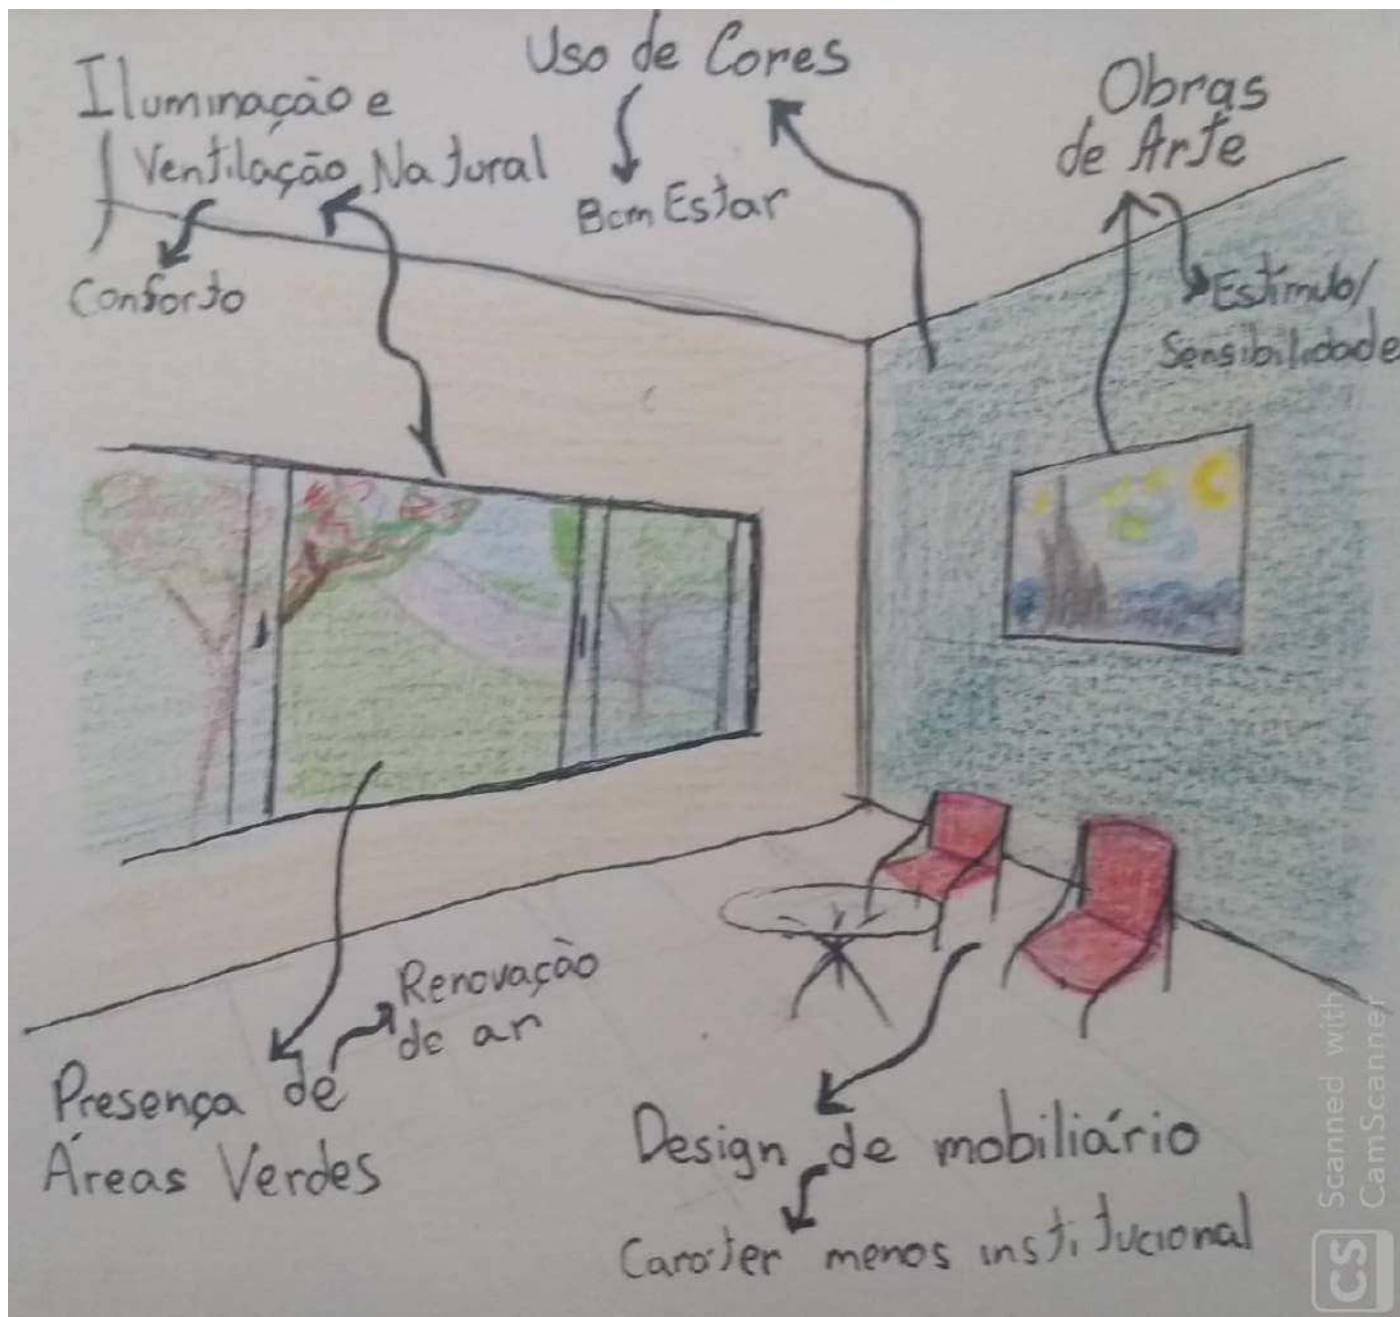 Iluminação e
Ventilação Natural
Conforto
Uso de Cores
Bem Estar
Obras
de Arte
Estímulo/
Sensibilidade
Renovação
de ar
Presença de
Áreas Verdes
Design de mobiliário
Caráter menos institucional
Scanned with
CamScanner
CS